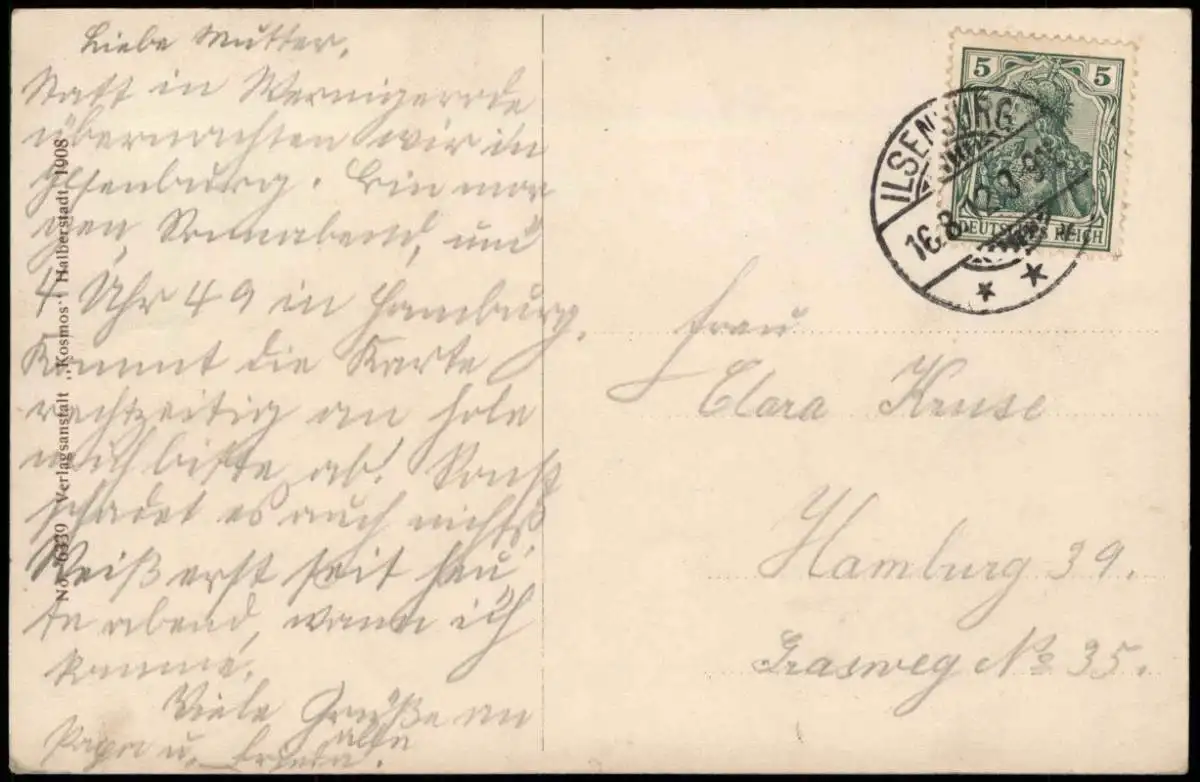 Liebe Mutter,
Statt in Wernigerode
übernachten wir in
Ilsenburg. Bin mor
gen, Sonnabend, um
4 Uhr 49 in Hamburg.
Kommt die Karte
rechtzeitig an hole
mich bitte ab! Sonst
schadet es auch nichts.
Weiß erst seit heu,
te abend, wann ich
komme.
Viele Grüße an
Papa u.
No. 6339 Verlagsanstalt „Kosmos“ Halberstadt 1908
5 5
DEUTSCHES REICH
ILSENBURG
16.8.
Frau
Clara Kruse
Hamburg 39.
Grasweg No 35.